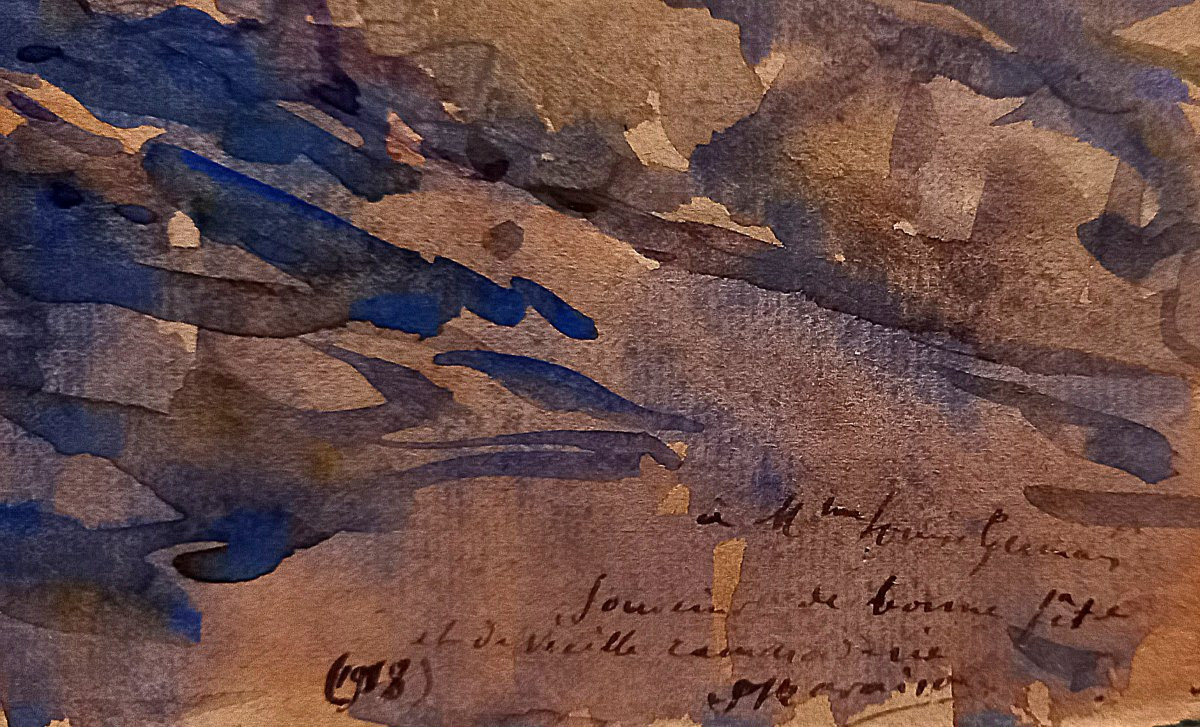 à Mme Louis Germain
Souvenir de bonne fête
et de vieille camaraderie
(1918)